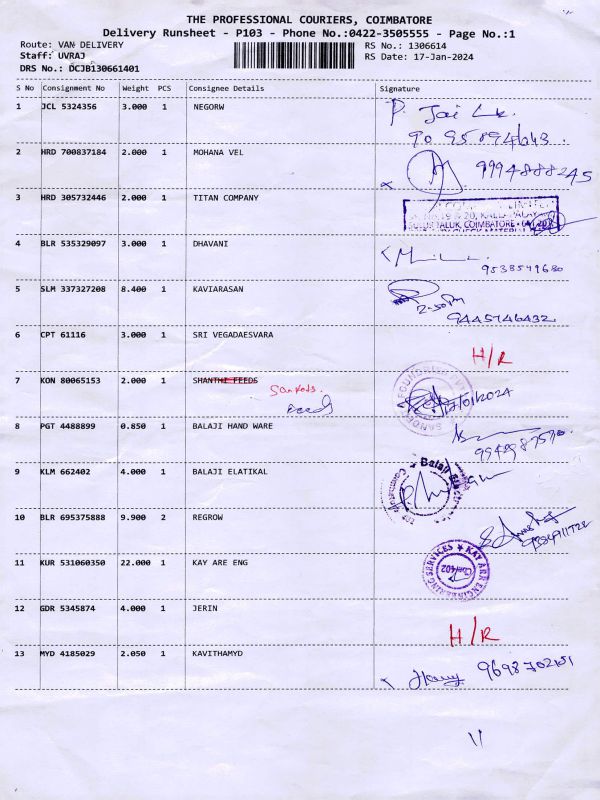 THE PROFESSIONAL COURIERS, COIMBATORE
Delivery Runsheet - P103 - Phone No.:0422-3505555 - Page No.:1
Route: VAN DELIVERY RS No.: 1306614
Staff: UVRAJ RS Date: 17-Jan-2024
DRS No.: DCJB130661401
S No Consignment No Weight PCS Consignee Details Signature
1 JCL 5324356 3.000 1 NEGORW
2 HRD 700837184 2.000 1 MOHANA VEL 9994888245
3 HRD 305732446 2.000 1 TITAN COMPANY
SULUR TALUK, COIMBATORE
4 BLR 535329097 3.000 1 DHAVANI
9538599680
5 SLM 337327208 8.400 1 KAVIARASAN
2-50pm
9445746432
6 CPT 61116 3.000 1 SRI VEGADAESVARA H/R
7 KON 80065153 2.000 1 SHANTHI FEEDS
17/01/2024
8 PGT 4488899 0.850 1 BALAJI HAND WARE
9 KLM 662402 4.000 1 BALAJI ELATIKAL
Balaji
10 BLR 695375888 9.900 2 REGROW
11 KUR 531060350 22.000 1 KAY ARE ENG
KAY ARR ENGINEERING SERVICES
12 GDR 5345874 4.000 1 JERIN H/R
13 MYD 4185029 2.050 1 KAVITHAMYD